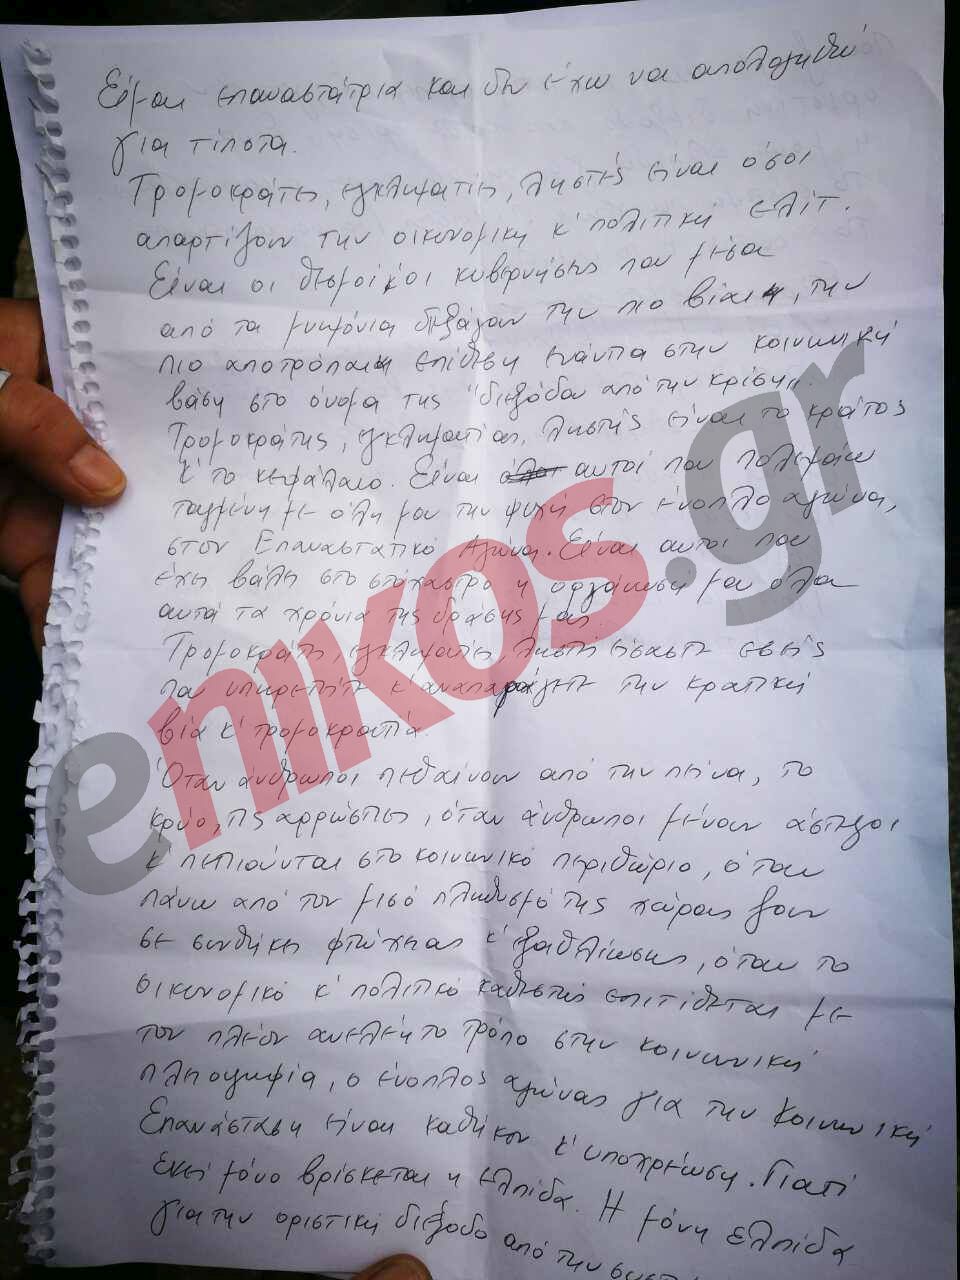 Είμαι επαναστάτρια και δεν έχω να απολογηθώ
για τίποτα.
Τρομοκράτες, εγκληματίες, ληστές είναι όσοι
απαρτίζουν την οικονομική κ' πολιτική ελίτ.
Είναι οι θεσμοί κ' οι κυβερνήσεις που μέσα
από τα μνημόνια διεξάγουν την πιο βίαιη, την
πιο αποτρόπαιη επίθεση ενάντια στην κοινωνική
βάση στο όνομα της "διεξόδου από την κρίση".
Τρομοκράτης, εγκληματίας, ληστής είναι το κράτος
κ' το κεφάλαιο. Είναι αυτοί που πολεμάω
ταγμένη με όλη μου την ψυχή στον ένοπλο αγώνα,
στον Επαναστατικό Αγώνα. Είναι αυτοί που
έχει βάλει στο στόχαστρο η οργάνωση μου όλα
αυτά τα χρόνια της δράσης μας.
Τρομοκράτες, εγκληματίες, ληστές είσαστε εσείς
που υπηρετείτε κ' αναπαράγετε την κρατική
βία κ' τρομοκρατία.
Όταν άνθρωποι πεθαίνουν από την πείνα, το
κρύο, τις αρρώστιες, όταν άνθρωποι μένουν άστεγοι
κ' πετιούνται στο κοινωνικό περιθώριο, όταν
πάνω από τον μισό πληθυσμό της χώρας ζουν
σε συνθήκες φτώχειας κ' εξαθλίωσης, όταν το
οικονομικό κ' πολιτικό καθεστώς επιτίθεται με
τον πλέον ανελέητο τρόπο στην κοινωνική
πλειοψηφία, ο ένοπλος αγώνας για την Κοινωνική
Επανάσταση είναι καθήκον κ' υποχρέωση. Γιατί
εκεί μόνο βρίσκεται η ελπίδα. Η μόνη ελπίδα
για την οριστική διέξοδο από την
enikos.gr